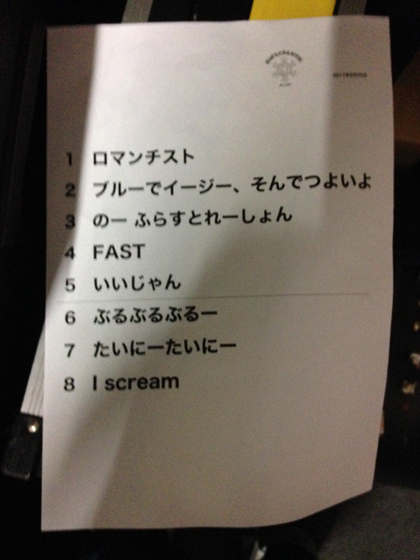 1 ロマンチスト
2 ブルーでイージー、そんでつよいよ
3 のー ふらすとれーしょん
4 FAST
5 いいじゃん
6 ぶるぶるぶるー
7 たいにーたいにー
8 I scream